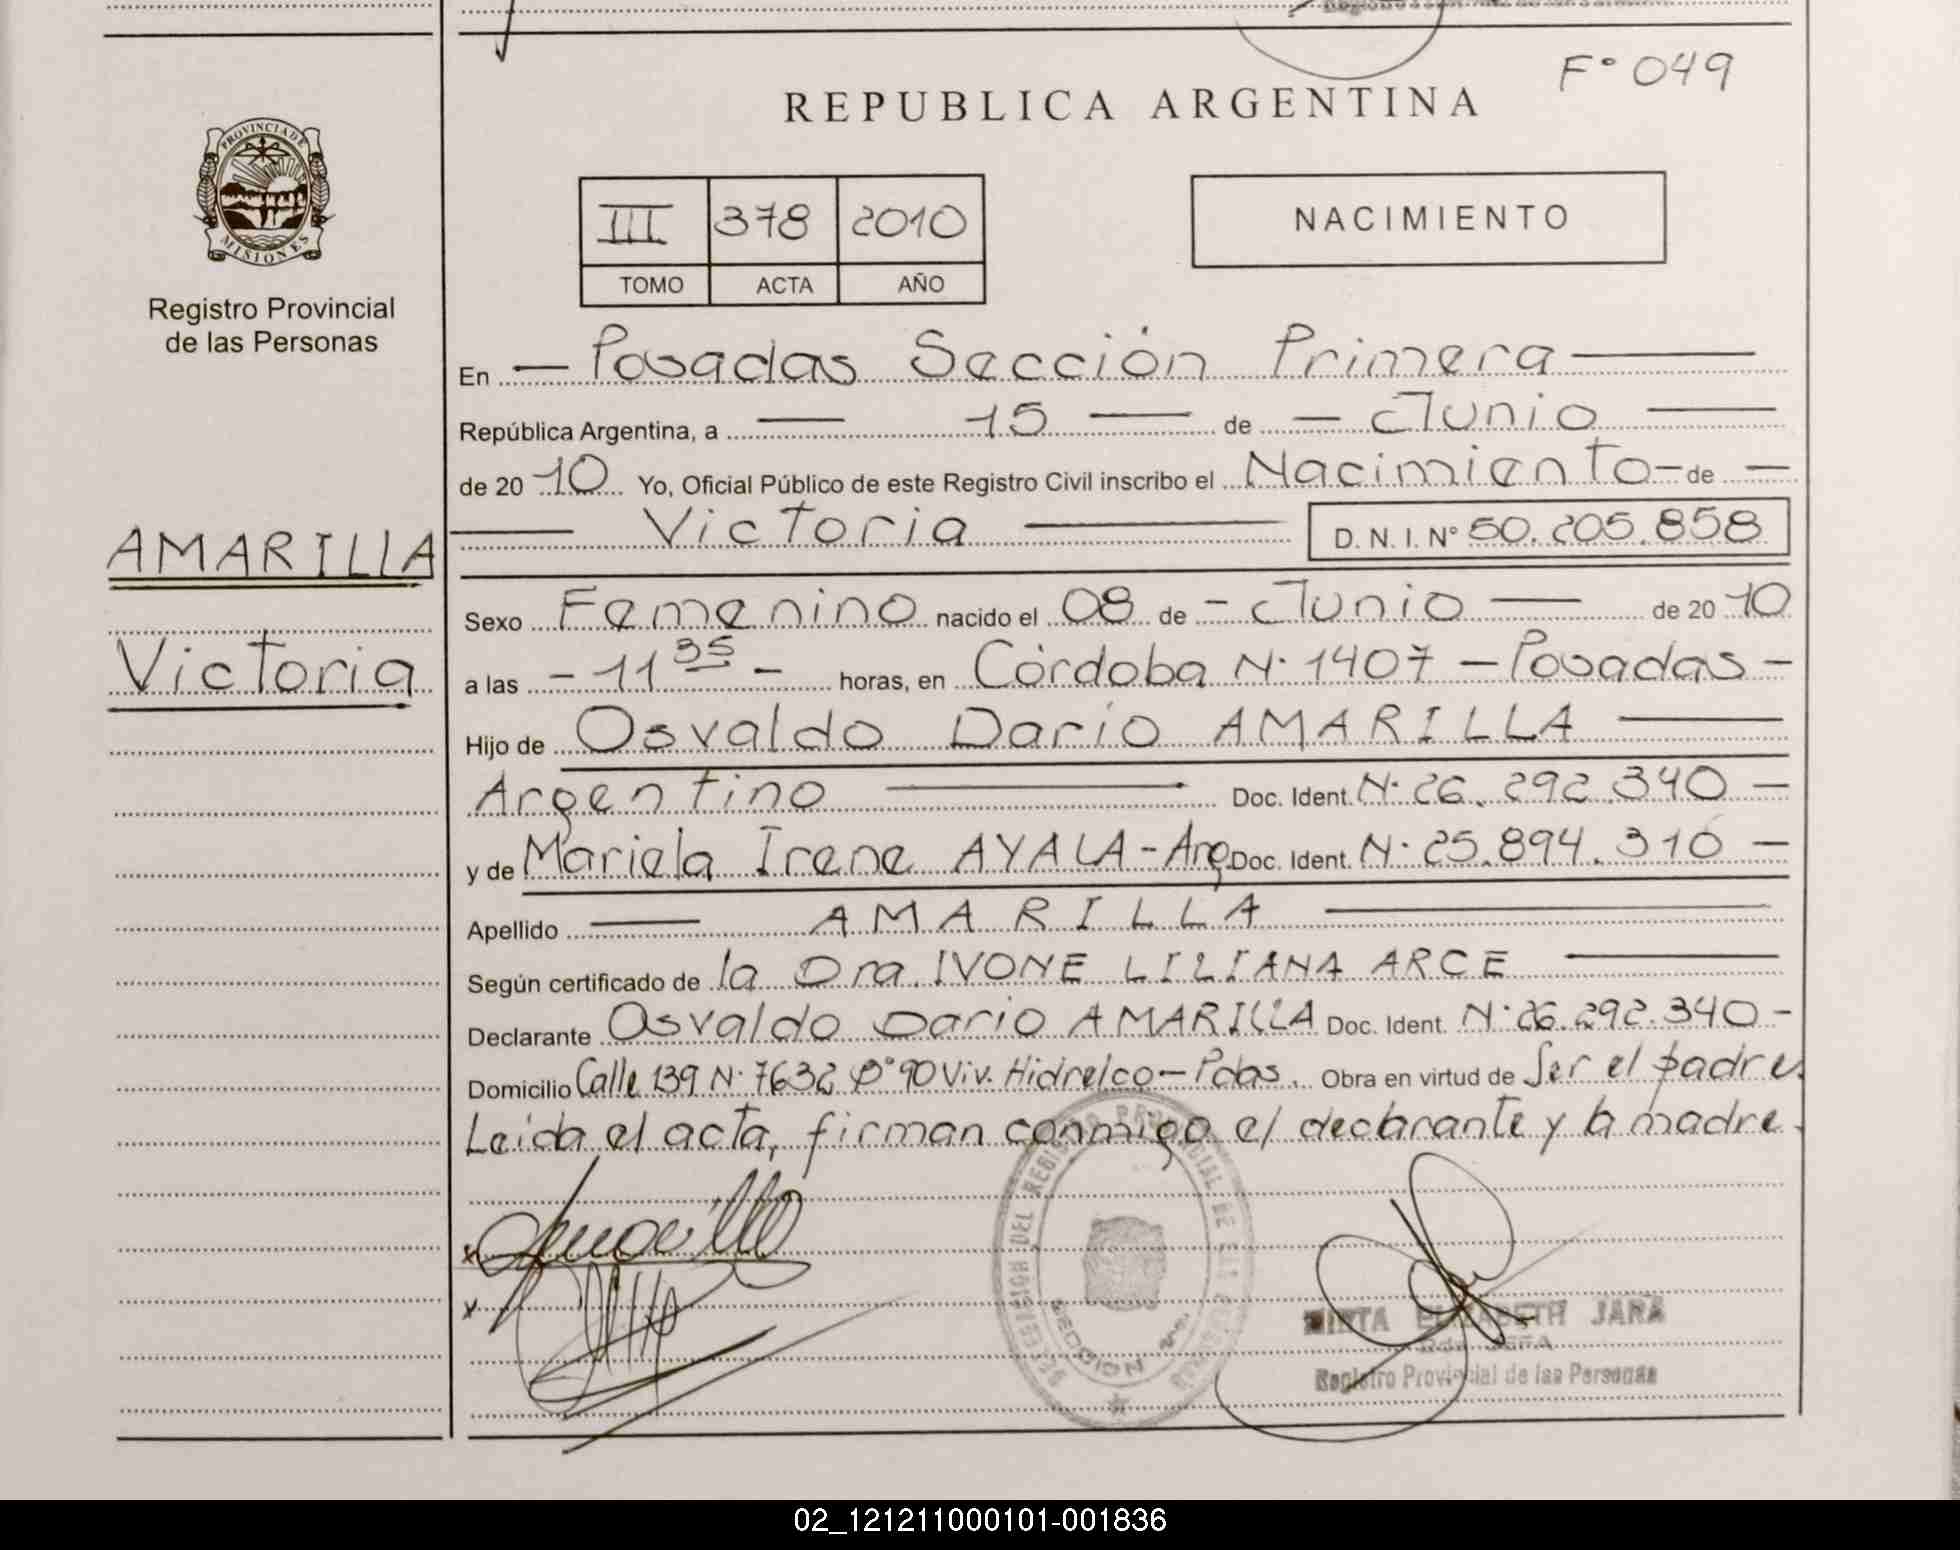 F° 049
REPUBLICA ARGENTINA
PROVINCIA DE
MISIONES
Registro Provincial
de las Personas
III 378 2010
TOMO ACTA AÑO
NACIMIENTO
En — Posadas Sección Primera —
República Argentina, a — 15 — de — Junio —
de 2010 Yo, Oficial Público de este Registro Civil inscribo el Nacimiento — de —
— Victoria — D. N. I. N° 50.205.858
AMARILLA
Victoria
Sexo Femenino nacido el 08 de - Junio — de 2010
a las - 11 35 - horas, en Córdoba N· 1407 — Posadas —
Hijo de Osvaldo Dario AMARILLA —
Argentino — Doc. Ident. N· 26.292.340 —
y de Mariela Irene AYALA - Arg Doc. Ident. N· 25.894.310 —
Apellido — AMARILLA —
Según certificado de la Dra. IVONE LILIANA ARCE —
Declarante Osvaldo Dario AMARILLA Doc. Ident. N· 26.292.340 -
Domicilio Calle 139 N· 7632 B° 90 Viv. Hidrelco - Pdas. Obra en virtud de Ser el padre.
Leida el acta, firman conmigo el declarante y la madre.
x
x
REGISTRO PROVINCIAL DE
SECCION
MIRTA ELIZABETH JARA
Registro Provincial de las Personas
02_121211000101-001836